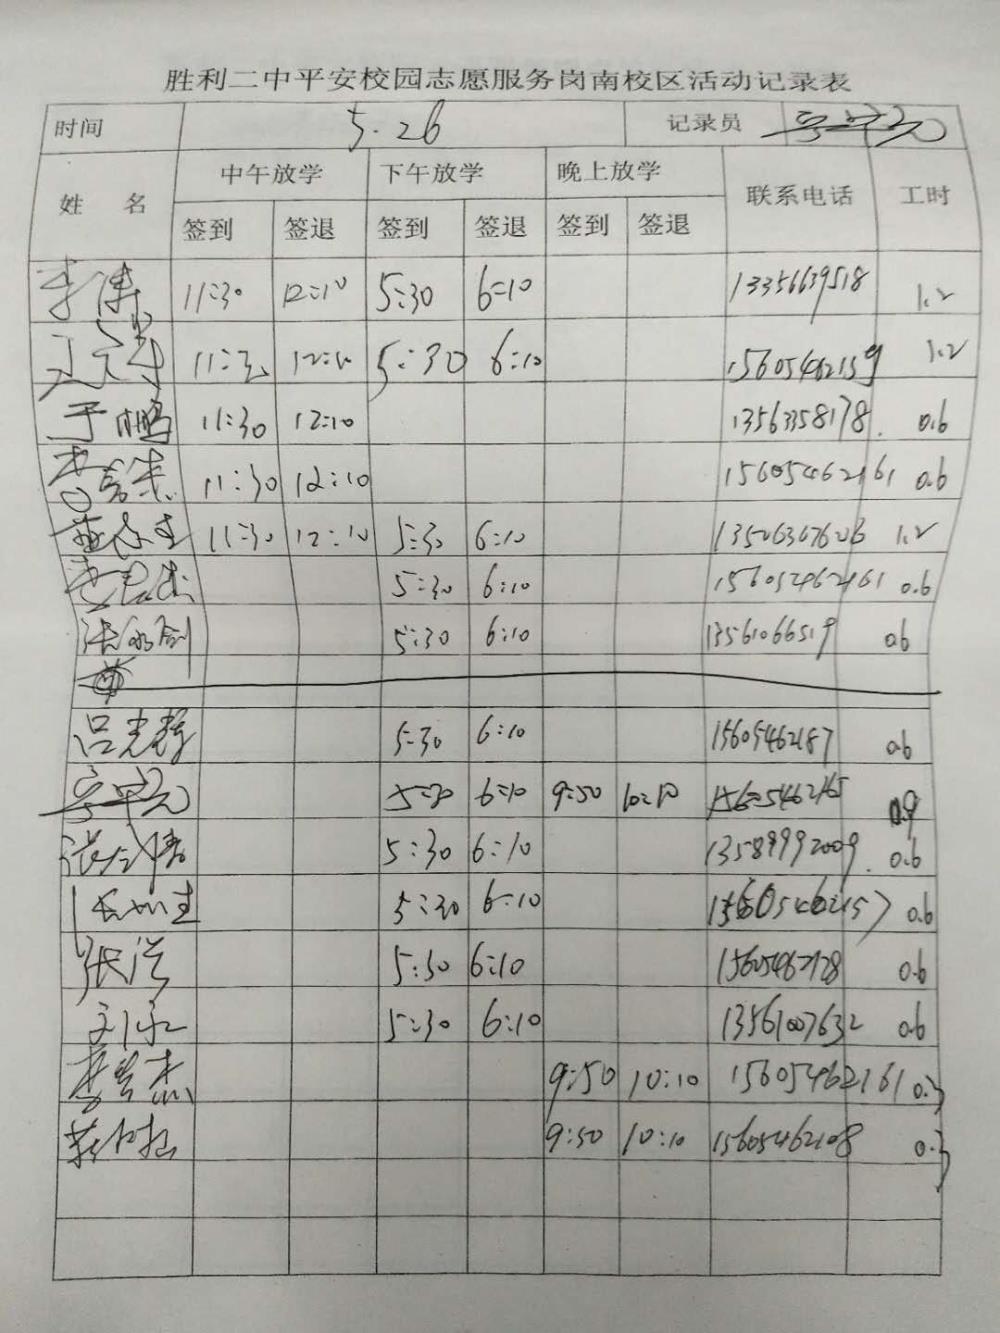 胜利二中平安校园志愿服务岗南校区活动记录表
时间 5.26 记录员
姓 名 中午放学 下午放学 晚上放学 联系电话 工时
签到 签退 签到 签退 签到 签退
李涛 11:30 12:10 5:30 6:10 13356639518 1.2
11:30 12:10 5:30 6:10 15605462159 1.2
于鹏 11:30 12:10 13563358178. 0.6
11:30 12:10 15605462161 0.6
11:30 12:10 5:30 6:10 13506367626 1.2
5:30 6:10 15605462161 0.6
5:30 6:10 13561066519 0.6
吕志静 5:30 6:10 15605462187 0.6
5:30 6:10 9:50 10:10 15605462165 0.9
5:30 6:10 13589992009. 0.6
5:30 6:10 0.6
张洪 5:30 6:10 15605462128 0.6
刘永 5:30 6:10 13561007632 0.6
9:50 10:10 15605462161 0.3
9:50 10:10 15605462108 0.3